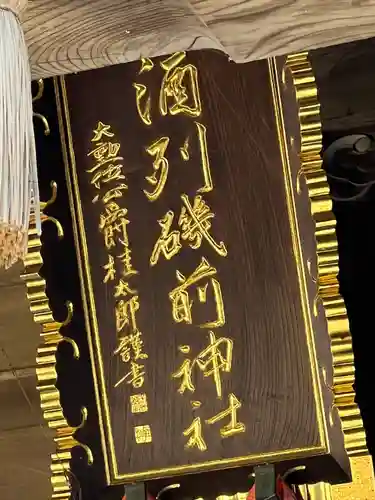 酒列磯前神社
大勲位公爵桂太郎謹書